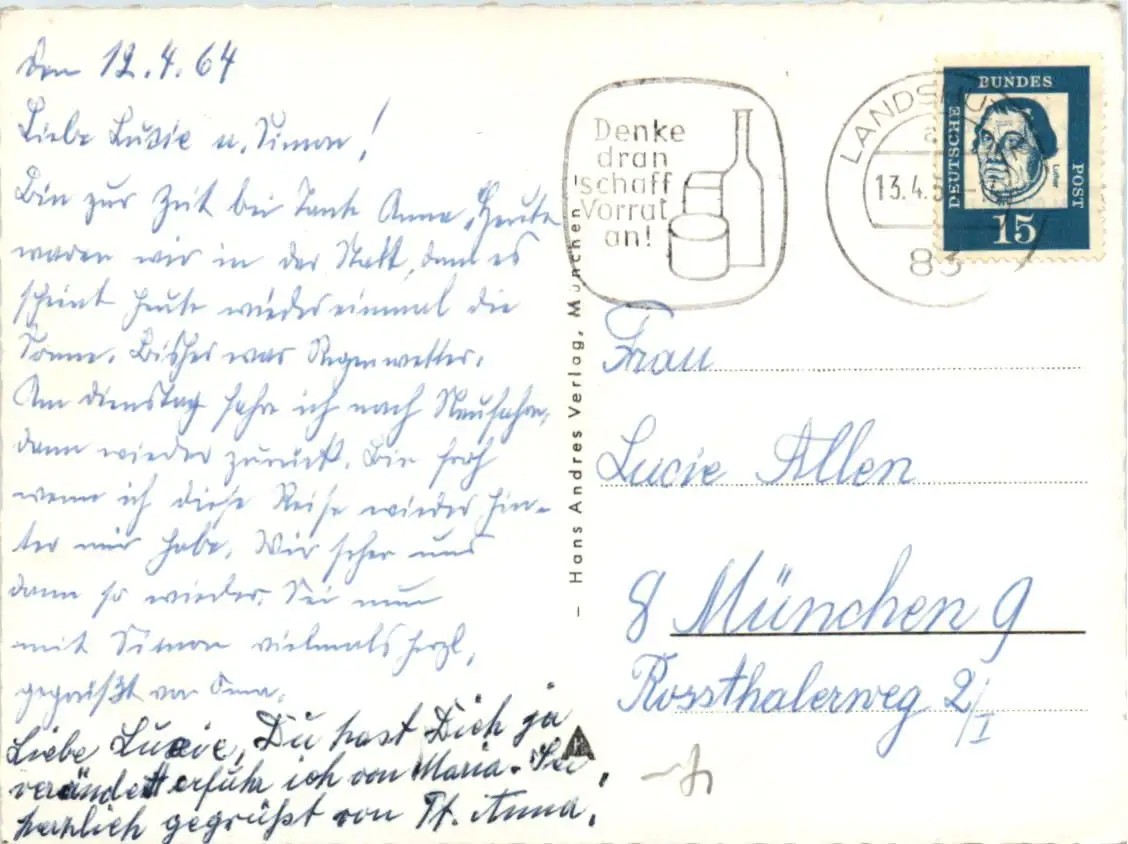 Den 12.4.64
Liebe Luzie u. Simon!
Bin zur Zeit bei Tante Anna, Heute
waren wir in der Statt, denn es
scheint heute wieder einmal die
Sonne. Bisher war Regenwetter.
Am Dienstag fahre ich nach Neufahrn,
dann wieder zurück. Bin froh
wenn ich diese Reise wieder hin-
ter mir habe. Wir sehen uns
dann so wieder. Sei nun
mit Simon vielmals herzl.
gegrüßt von Oma.
Liebe Luzie, Du hast Dich ja
verändert erfuhr ich von Maria. Sei
herzlich gegrüßt von Tt. Anna!
Denke
dran
'schaff
Vorrat
an!
LANDSHUT
a
13.4.
83
DEUTSCHE BUNDES POST
Luther
15
– Hans Andres Verlag, München
Frau
Lucie Allen
8 München 9
Rossthalerweg 2/I